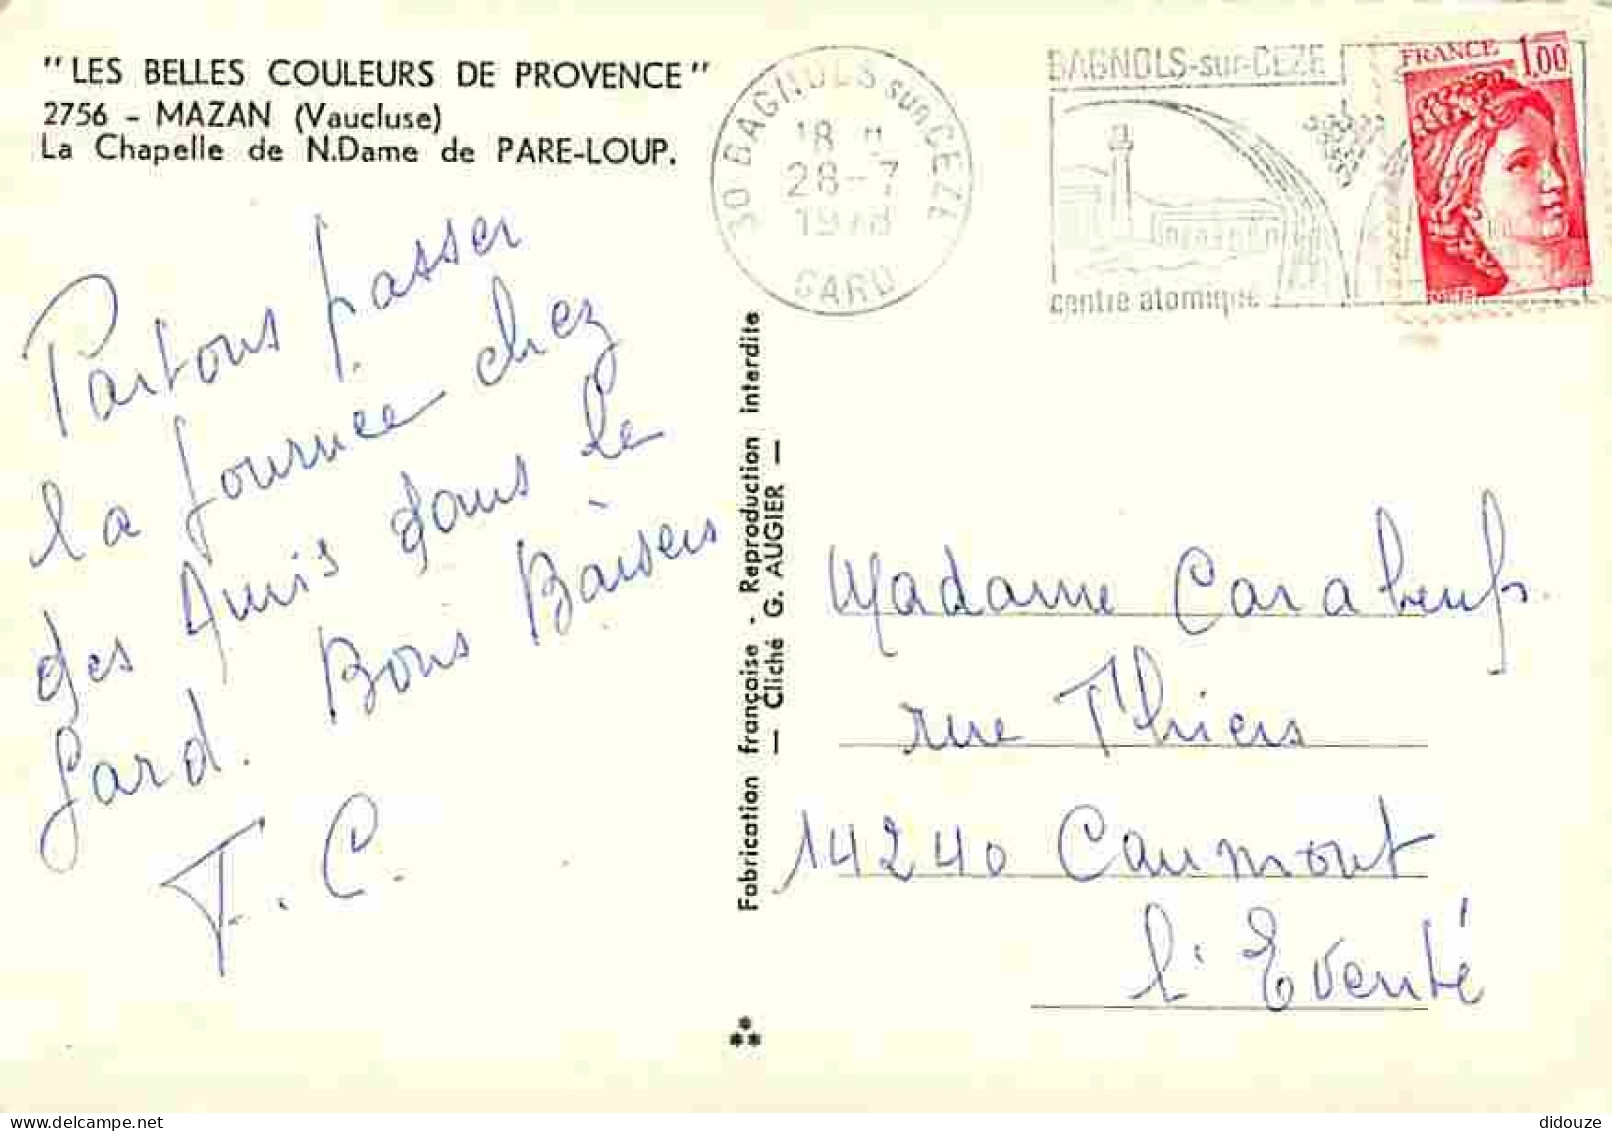 "LES BELLES COULEURS DE PROVENCE"
2756 - MAZAN (Vaucluse)
La Chapelle de N.Dame de PARE-LOUP.
Partons passer
la journee chez
des Amis dans le
Gard. Bons Baisers
F. C.
Fabrication française - Reproduction interdite
— Cliché G. AUGIER —
30 BAGNOLS sur CEZE
18 H
28-7
1978
GARD
BAGNOLS-sur-CEZE
centre atomique
FRANCE 1.00
Madame Carabeufs.
rue Thiers
14240 Caumont
l'Eventé
didouze